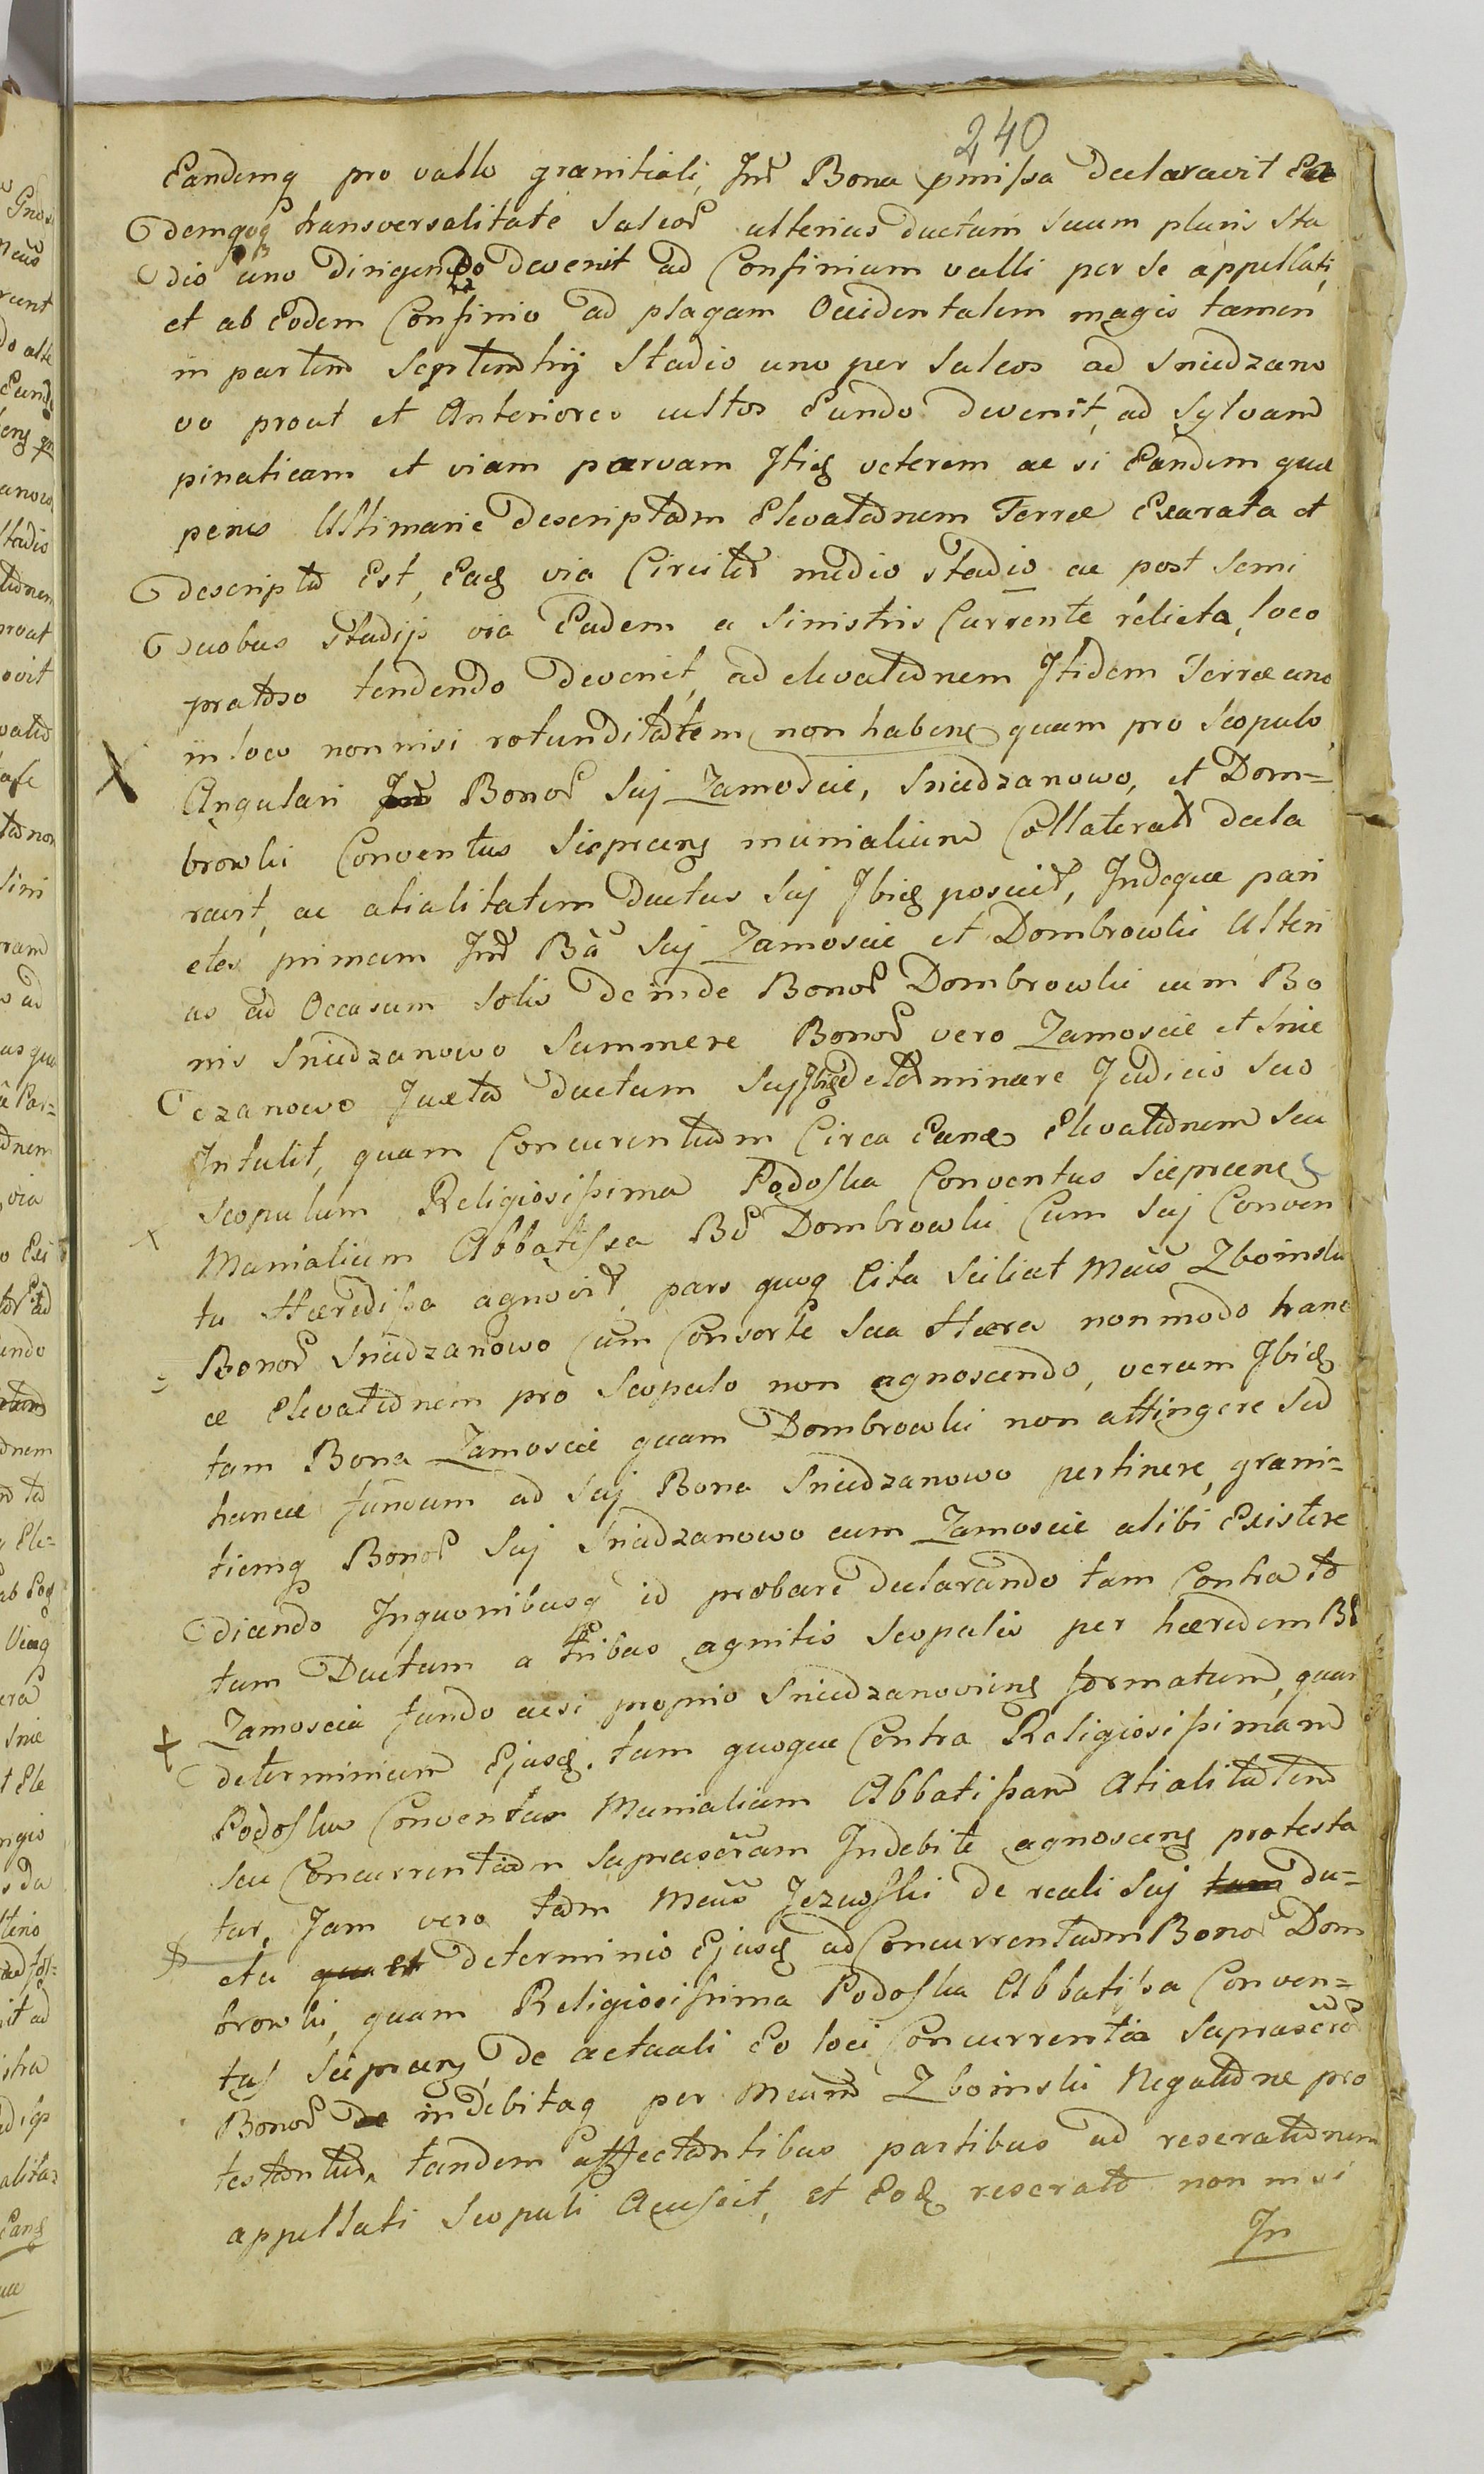 240
Eandemq pro vallo granitiali, Intr Bona pmissa declaravit Ea
demqoq transversalitate Salcor ulterius ductum suum pluris Sta
dio uno dirigendo devenit ad Confinium valli per se appellati,
et ab Eodem Confinio ad plagam Occidentalem magis tamen
in partem Septemtrij Stadio uno per Sulcos ad Sniedzano
vo prout et Anteriores cultos Eundo devenit, ad Sylvam
pinaticam et viam parvam Itid veterem ac si Eandem quæ
penes Ultimarie descriptam Elevationem Terræ Exarata et
descripta Est, Ead via Circiter medio Stadio ac post Semi
duobus Stadijs via Eadem a Sinistris Currente relicta, loco
pratoso tendendo devenit, ad elevationem Itidem Terræ uno
in loco nonnisi rotunditatem non haben quam pro Scopulo,
Angulari Bonor Suj Zamoscie, Sniedzanowo, et Dom=
browki Conventus Sieprcens monialium Collateral decla
ravit, ac atialitatem Ductus Suj Ibid poscit, Indeque pari
etes primum Intr Ba Suj Zamoscie et Dombrowki Ulteri
us ad Occasum Solis deinde Bonor Dombrowki cum Bo
nis Sniedzanowo Summere Bonor vero Zamoscie et Snie
dzanowo Juxta ductum Suj Ibid determinare Judicio Suo
Intulit, quam Concurentiam Circa Eand Elevationem Seu
Scopulum Religiosissima Podoska Conventus Sieprcens
Monialium Abbatissa Br Dombrowki Cum Suj Conven
tu Hæredissa agnovit, pars quoq Cita Scilicet Mcus Zboinski
Bonor Sniedzanowo Cum Consorte Sua Hæres nonmodo hanc
ce Elevationem pro Scopulo non agnoscendo, verum Ibid
tam Bona Zamoscie quam Dombrowki non attingere Sed
huncce fundum ad Suj Bona Sniedzanowo pertinere, grani=
tiemq Bonor Suj Sniedzanowo cum Zamoscie alibi Existere
dicendo Inquonibusq id probare declarando tam Contra to
tum Ductum a tribus agnitis Scopulis per hæredem Br
Zamoscie fundo acsi proprio Sniedzanoviens formatum, quam
determinium Ejusd. tum quoque Contra Religiosissimam
Podoska Conventus Monialium Abbatissam Atialitatem
seu Concurrentiam Suprascram Indebite agnoscens protesta
tur, Jam vero tam Mcus Jezuski de reali Suj du=
ctu determinio Ejusd ad Concurrentiam Bonor Dom
browki, quam Religiosissima Podoska Abbatissa Conven=
tus Sieprcens, de actuali Eo loci Concurrentia Suprascr
Bonor indebitaq per Mcum Zboinski Negatione pro
testantur, tandem affectantibus partibus ad reserationem
appellati Scopuli Accessit, et Eod reserato non nisi
In